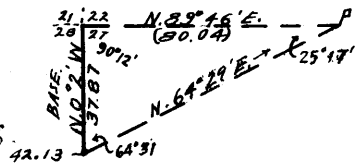 21 22
28 27
N. 89° 46' E.
(80.04)
P
90°12'
25° 17'
BASE.
N. 0° 2' W
37.87
N. 64° 29' E.
42.13
64° 31